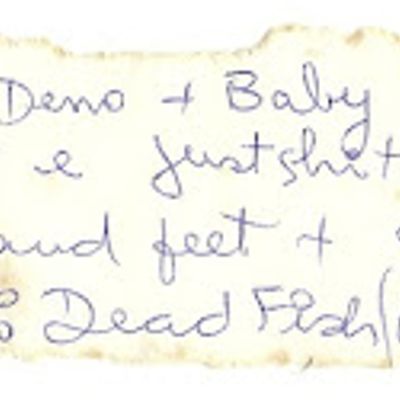 Demo + Baby
e justshit
and feet +
Dead Fish (